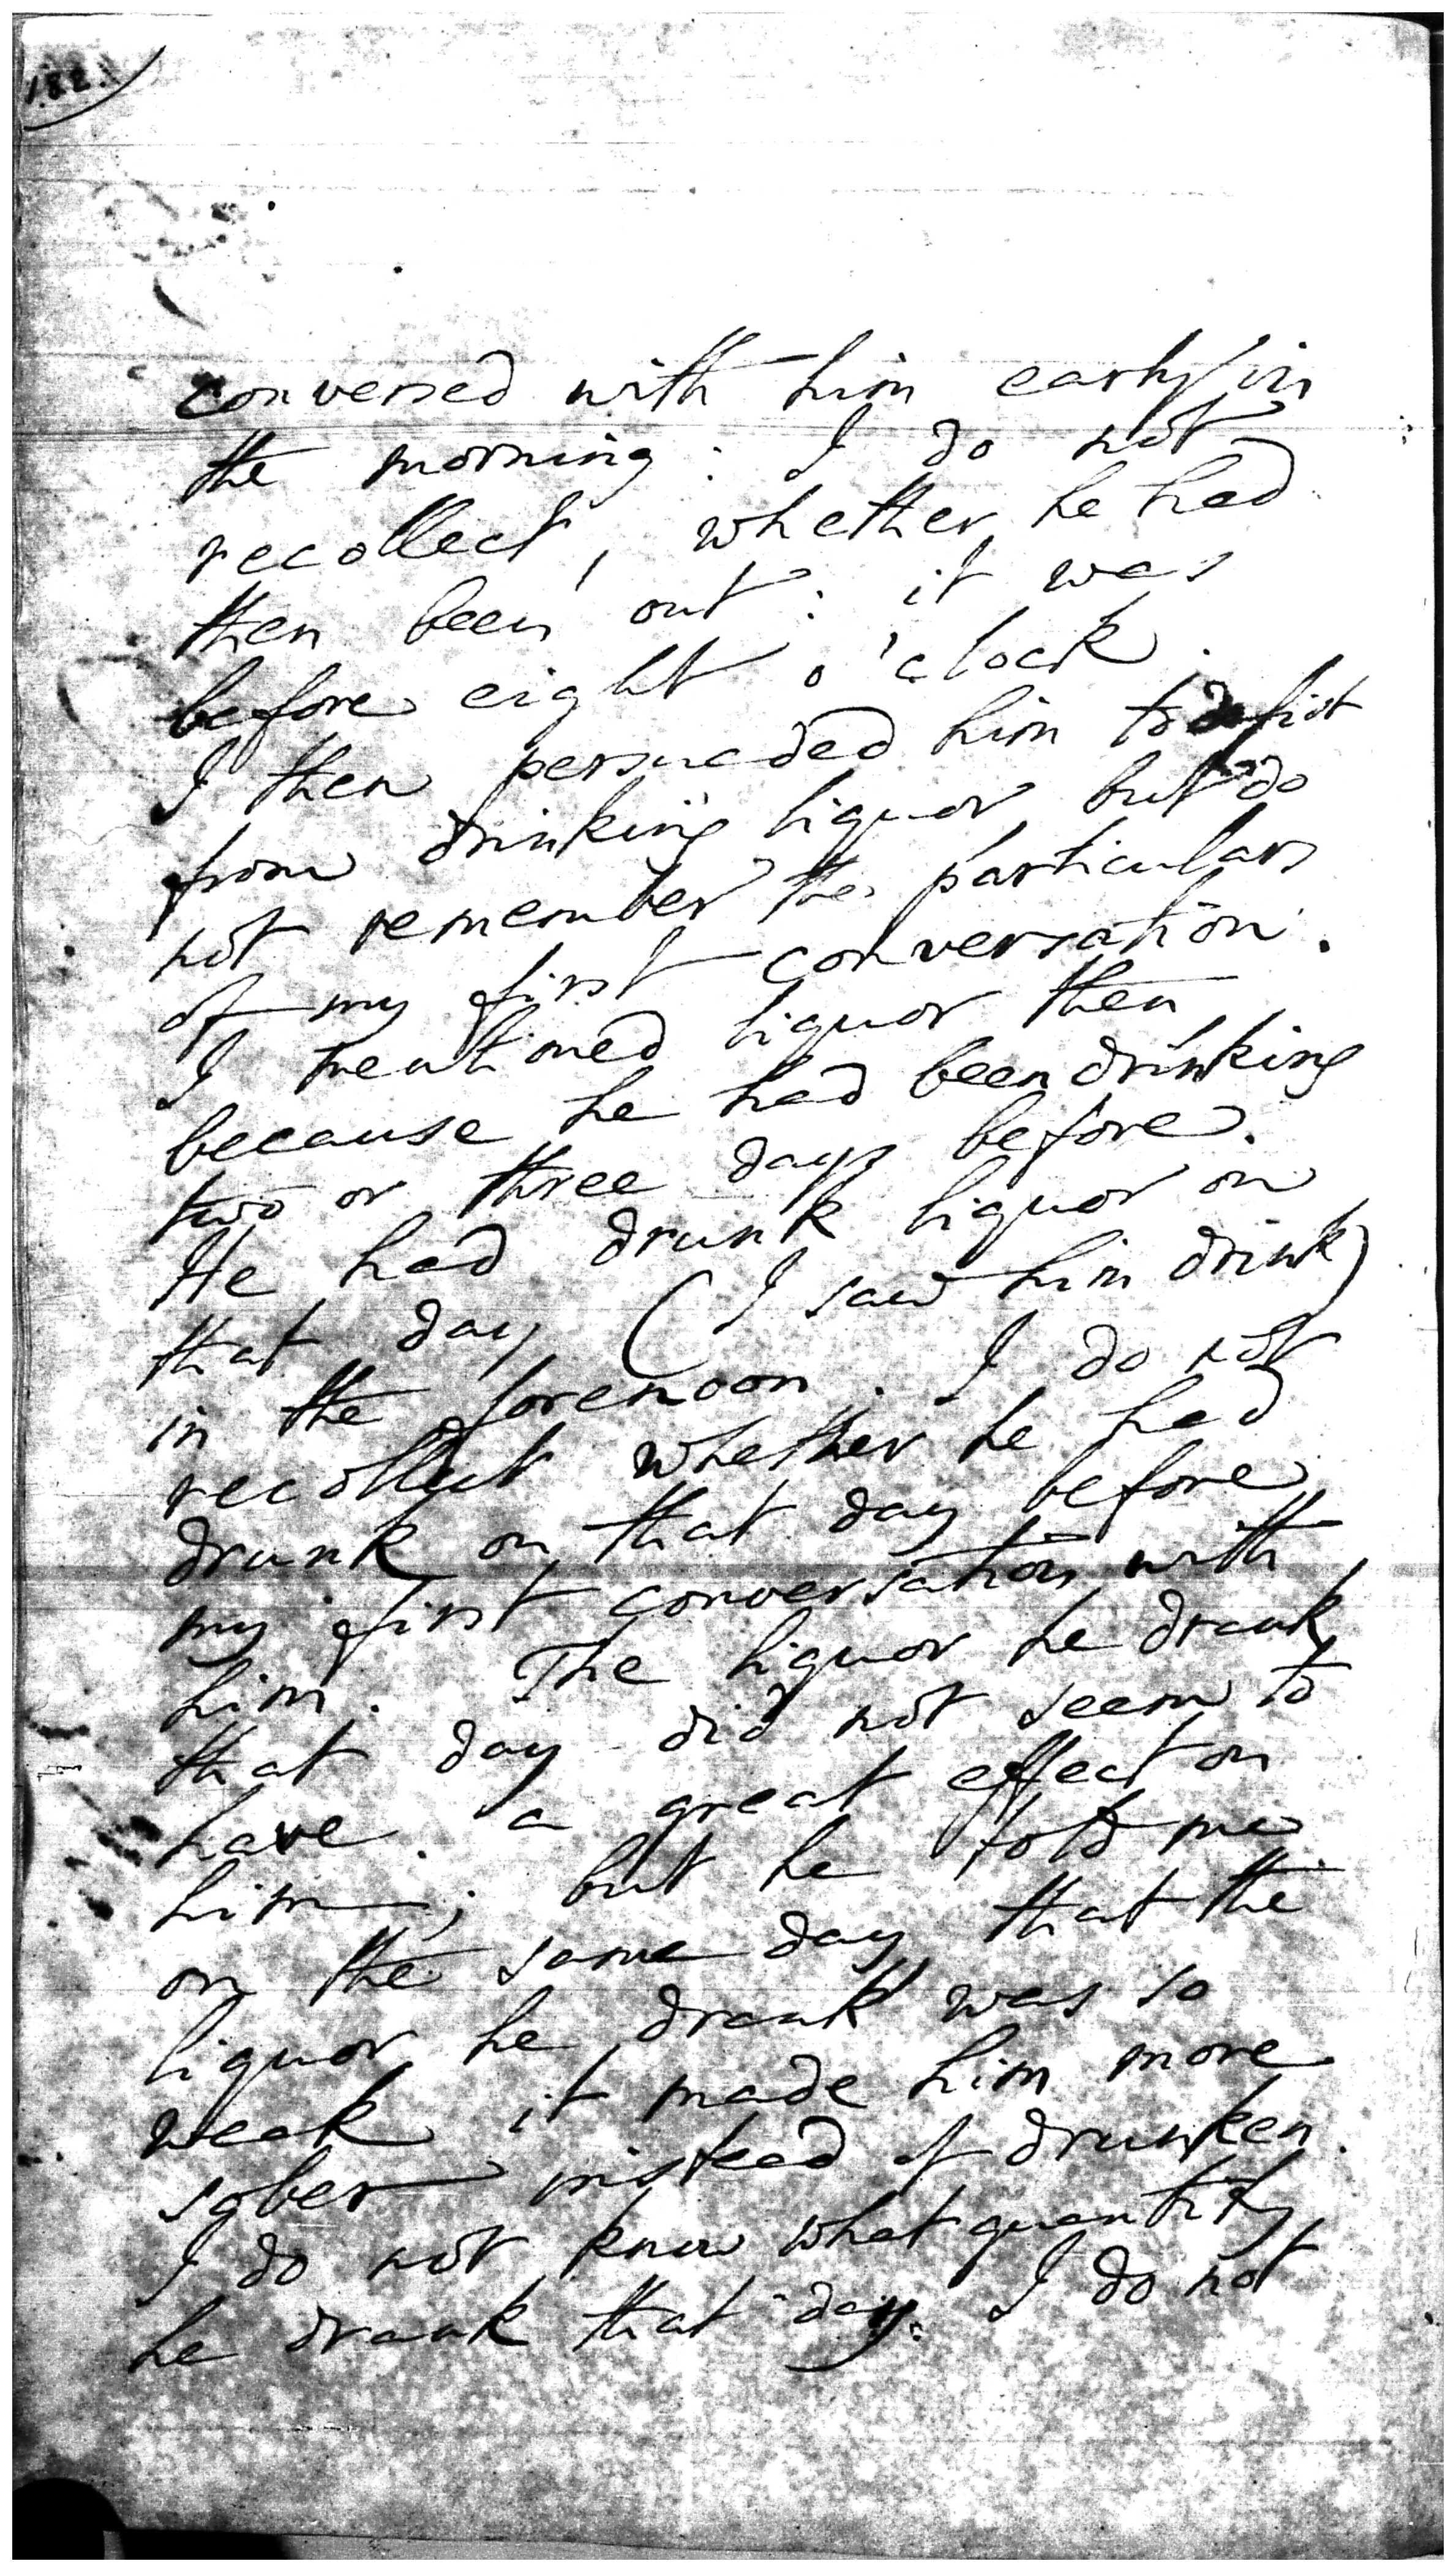 182.
conversed with him early in
the morning: I do not
recollect, whether he had
then been out: it was
before eight o'clock.
I then persuaded him to desist
from drinking liquor, but do
not remember the particulars
of my first conversation.
I mentioned liquor then
because he had been drinking
two or three days before.
He had drunk liquor on
that day (I saw him drink)
in the forenoon. I do not
recollect whether he had
drunk on that day before
my first conversation with
him. The liquor he drank
that day did not seem to
have a great effect on
him; but he told me
on the same day that the
liquor he drank was so
weak it made him more
sober instead of drunken.
I do not know what quantity
he drank that day. I do not